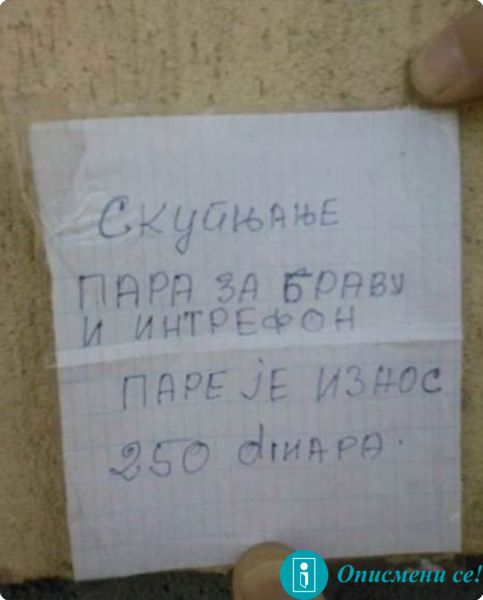 Скупњање
ПАРА ЗА БРАВУ
И ИНТРЕФОН
ПАРЕ ЈЕ ИЗНОС
250 dIНАРА.
Описмени се!